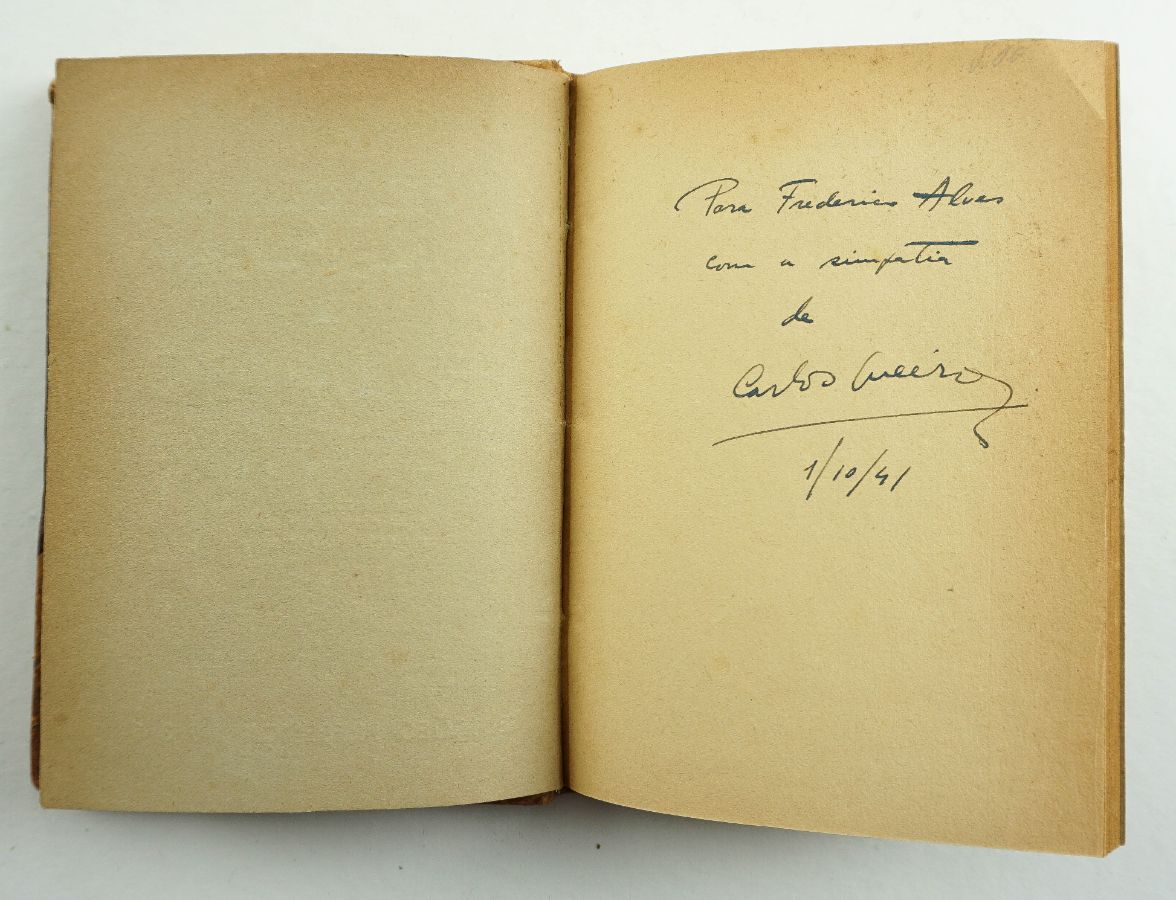 Para Frederico Alves
com a simpatia
de
Carlos Queiroz
1/10/41